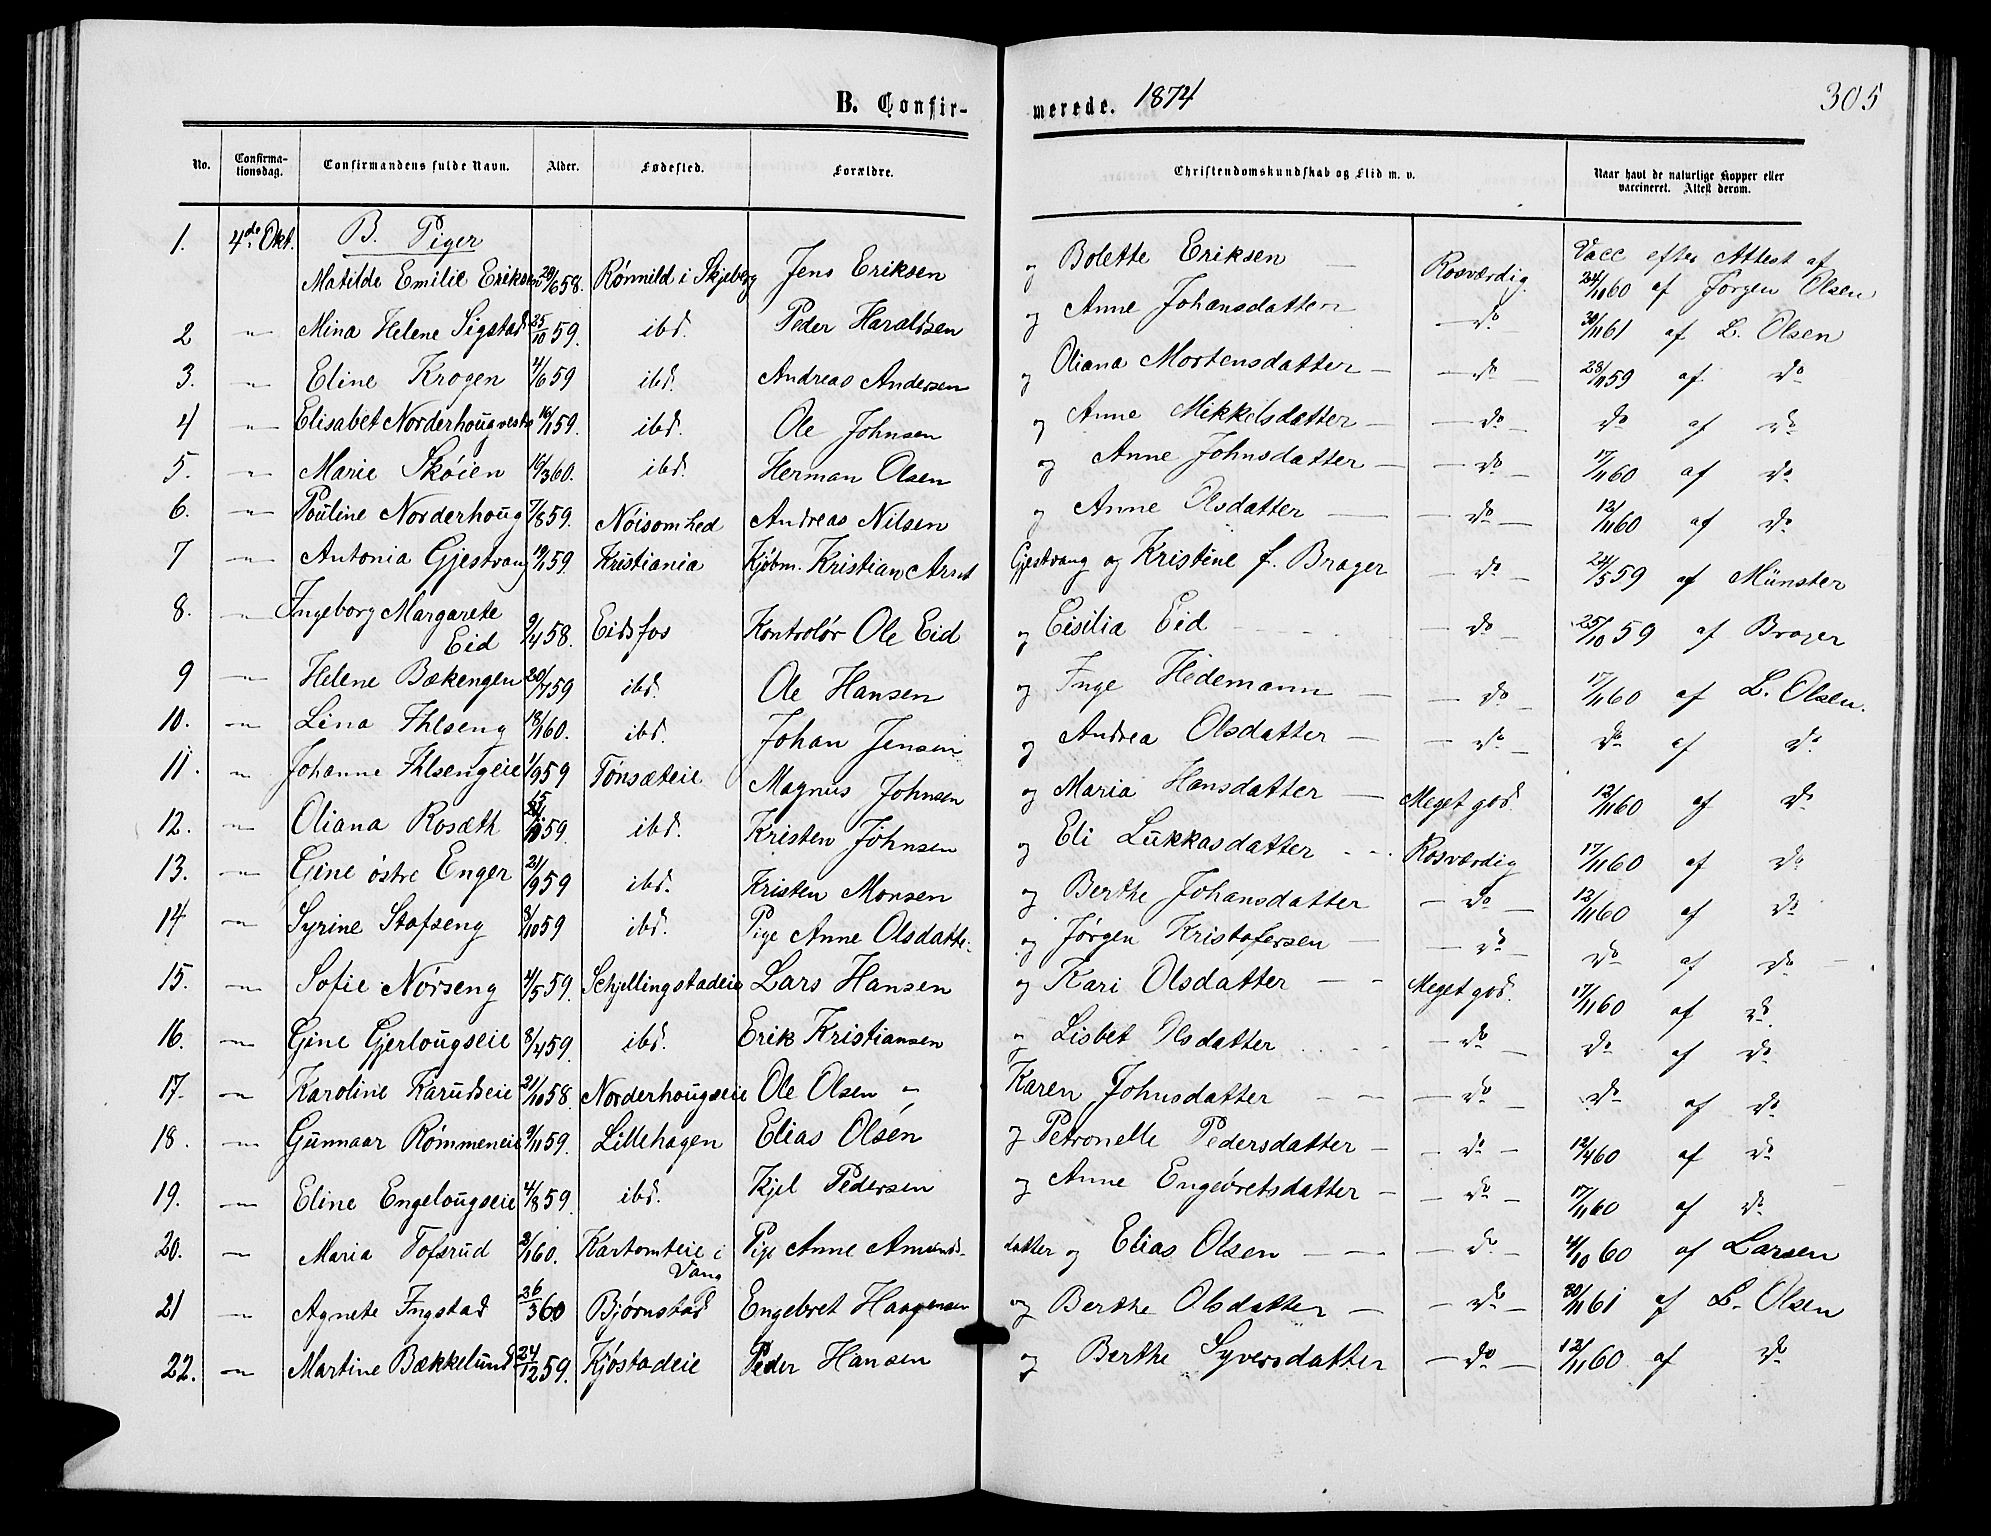 B. Confir-
merede. 1874
305
No. Confirma-tionsdag. Confirmandens fulde Navn. Alder. Fødested. Forældre. Christendomskundskab og Flid m. v. Naar havt de naturlige Kopper eller vaccineret. Attest derom.
B. Piger
1. 4de Okt. Matilde Emilie Eriksen 29/6 58. Rönmild i Skjeberg Jens Eriksen og Bolette Eriksen — Rosværdig Vacc efter Attest af 24/10 60 af Jørgen Olsen
2 — Mina Helene Sigstad 25/10 59. ibd. Peder Haraldsen og Anne Johansdatter — do 30/11 61 af L. Olsen
3. — Eline Krogen 4/6 59 ibd. Andreas Andersen og Oliana Mortensdatter — do — 28/11 59 af do
4 — Elisabet Norderhougvestre 16/11 59. ibd. Ole Johnsen og Anne Mikkelsdatter — do — do af do
5. — Marie Skøien 16/3 60. ibd. Herman Olsen og Anne Johnsdatter — do 17/11 60 af do
6. — Pouline Norderhoug 7/8 59. Nöisomhed Andreas Nilsen og Anne Olsdatter — do — 12/11 60 af do
7 — Antonia Gjestvang 19/1 59. Kristiania Kjöbm. Kristian Arnt Gjestvang og Kristine f. Brager — do — 24/5 59 af Münster
8. — Ingeborg Margarete Eid 9/4 58. Eidsfos Kontrolör Ole Eid og Cisilia Eid — do — 25/10 59 af Brager
9 — Helene Bækengen 20/7 59 ibd. Ole Hansen og Inge Hedemann — do — 17/11 60 af L. Olsen.
10. — Lina Ihlseng 18/1 60. ibd. Johan Jensen og Andrea Olsdatter — do — do af do
11. — Johanne Ihlsengeie 1/9 59 Tonsæteie Magnus Johnsen og Maria Hansdatter — Meget god. 12/11 60 af do
12. — Oliana Rosæth 59. ibd. Kristen Johnsen og Eli Lukkasdatter — Rosværdig 17/11 60 af do
13. — Gine östre Enger 21/9 59 ibd. Kristen Monsen og Berthe Johansdatter — do — 12/11 60 af do
14 — Syrine Stafseng 8/10 59 ibd. Pige Anne Olsdatte. og Jørgen Kristofersen — do do af do
15. — Sofie Nörseng 4/5 59. Schjellingstadeie Lars Hansen og Kari Olsdatter — Meget god. 17/11 60 af do
16. — Gine Gjerlougseie 8/4 59. ibd. Erik Kristiansen og Lisbet Olsdatter — do — do af do
17. — Karoline Karudseie 21/10 58. Norderhougseie Ole Olsen og Karen Johnsdatter — do — do af do
18. — Gunnaar Rømmeneie 9/11 59. Lillehagen Elias Olsen og Petronelle Pedersdatter — do — 12/4 60 af do
19. — Eline Engelougseie 4/8 59. ibd. Kjel Pedersen og Anne Engevretsdatter — do — 17/11 60 af do
20. — Maria Tofsrud 3/1 60. Kartomteie i Vang Pige Anne Amunds-datter og Elias Olsen — do — 4/10 60 af Larsen
21 — Agnete Ingstad 26/3 60 Bjørnstad Engebret Haagensen og Berthe Olsdatter — do — 30/11 61 af L. Olsen
22. — Martine Bækkelund 24/12 59. Kjøstadeie Peder Hansen og Berthe Syversdatter — do — 12/11 60 af do